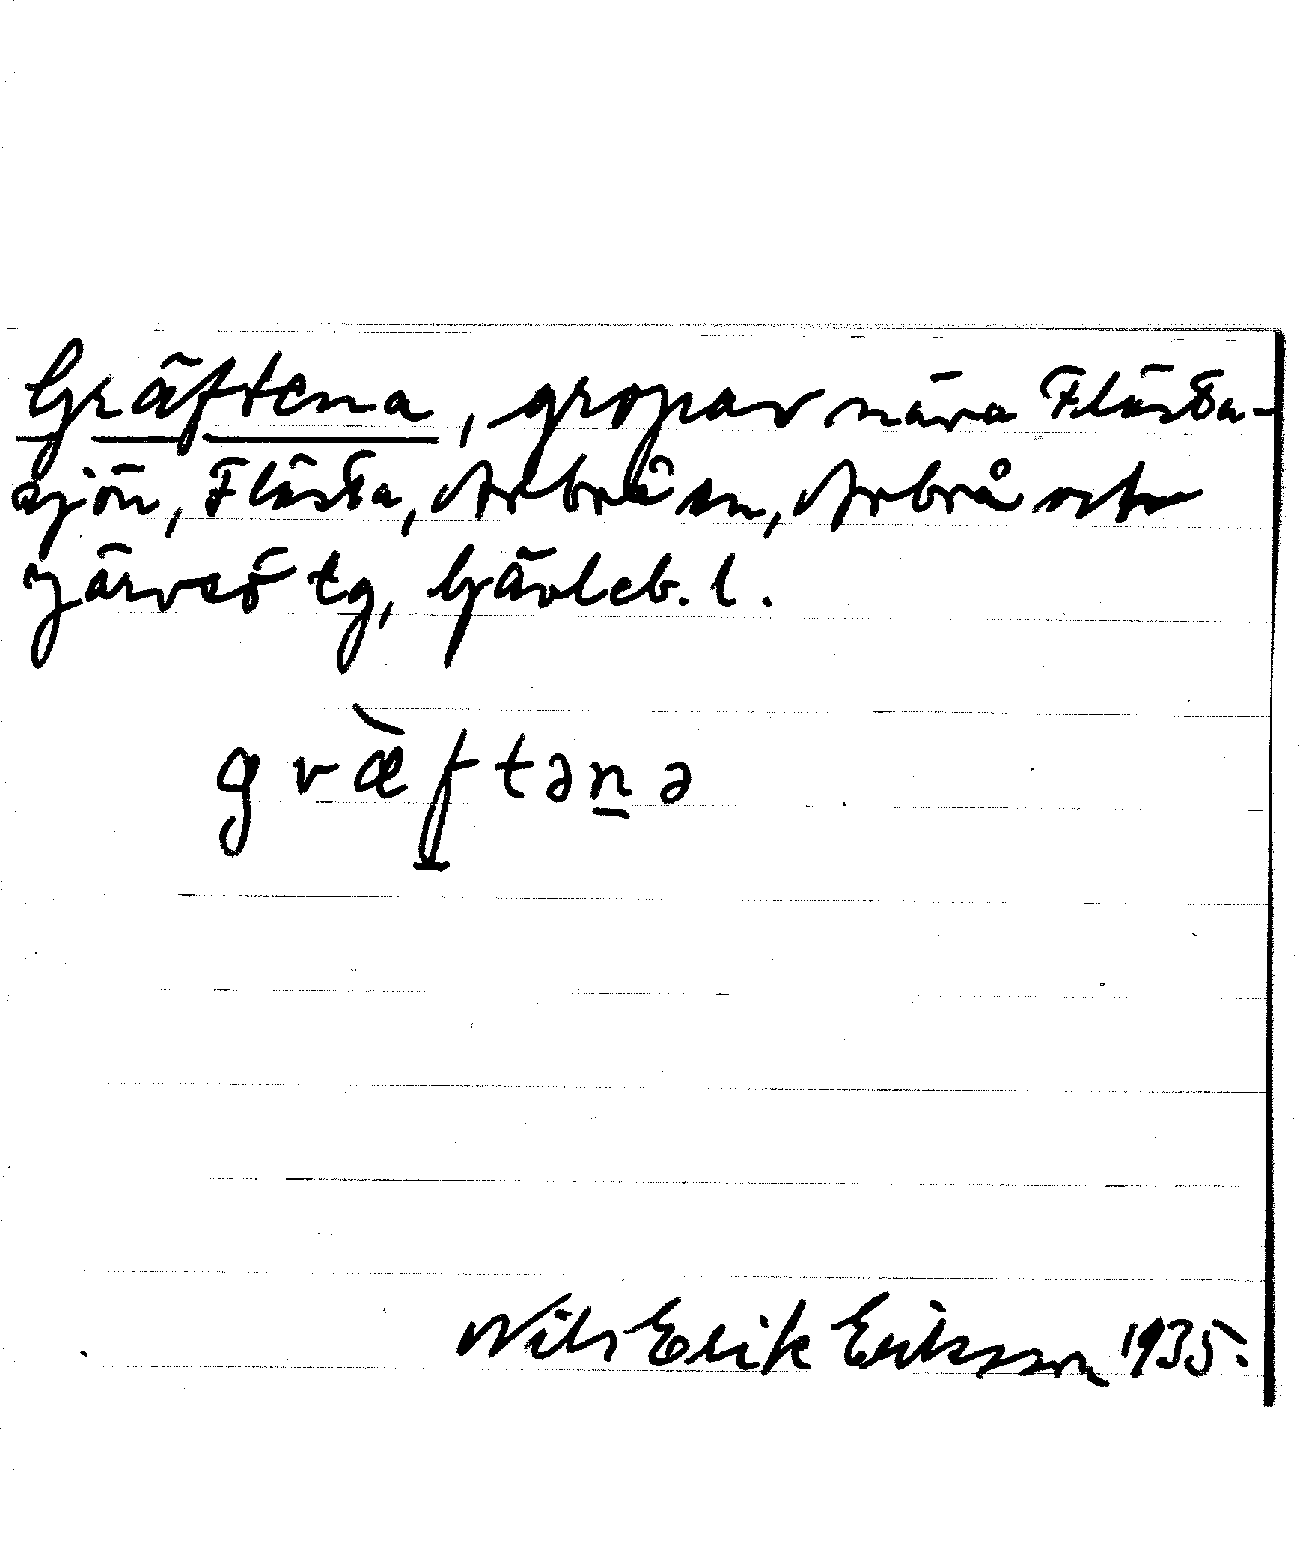 Gräftena, gropar nära Flästa-
sjön, Flästa, Arbrå sn, Arbrå och
Järvsö tg, Gävleb. l.
græ̀f̲tən̲ə
Nils Erik Eriksson 1935.